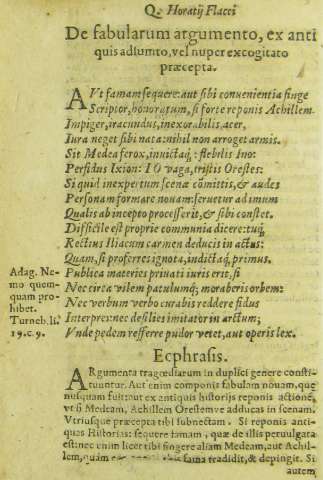 Q. Horatij Flacci
De fabularum argumento, ex anti
quis adsumto, vel nuper excogitato
præcepta.
AVt famam sequere: aut sibi convenientia finge
Scriptor, honoratum, si forte reponis Achillem.
Impiger, iracundus, inexorabilis, acer,
Iura neget sibi nata: nihil non arroget armis.
Sit Medea ferox, invictaq́; flebilis Ino:
Perfidus Ixion: IO vaga, tristis Orestes:
Si quid inexpertum scenæ cōmittis, & audes
Personam formare novam: servetur ad imum
Qualis ab incepto processerit, & sibi constet.
Difficile est proprie communia dicere: tuq́;
Rectius Iliacum carmen deducis in actus:
Quam, si proferres ignota, indictaq́; primus.
Publica materies privati iuris erit, si
Nec circa vilem patulumq́; moraberis orbem:
Nec verbum verbo curabis reddere fidus
Interpres: nec desilies imitator in arctum;
Vnde pedem referre pudor vetet, aut operis lex.
Adag. Ne-
mo quem-
quam pro-
hibet.
Turneb. li.
19. c. 9.
Ecphrasis.
ARgumenta tragœdiarum in duplici genere consti-
tuuntur. Aut enim componis fabulam novam, quæ
nusquam fuit: aut ex antiquis historijs reponis actionē,
vt si Medeam, Achillem Orestemve adducas in scenam.
Vtriusque præcepta tibi subnectam. Si reponis anti-
quas Historias: sequere famam, quæ de illis pervulgata
est: nec enim licet tibi singere aliam Medeam, aut Achil-
lem, quam fama tradidit, & depingit. Si
autem